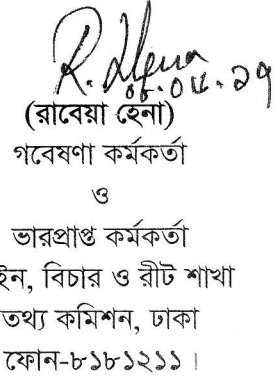 R. Hena
(রাবেয়া হেনা)
গবেষণা কর্মকর্তা
ও
ভারপ্রাপ্ত কর্মকর্তা
ইন, বিচার ও রীট শাখা
তথ্য কমিশন, ঢাকা
ফোন-৮১৮১২১১।